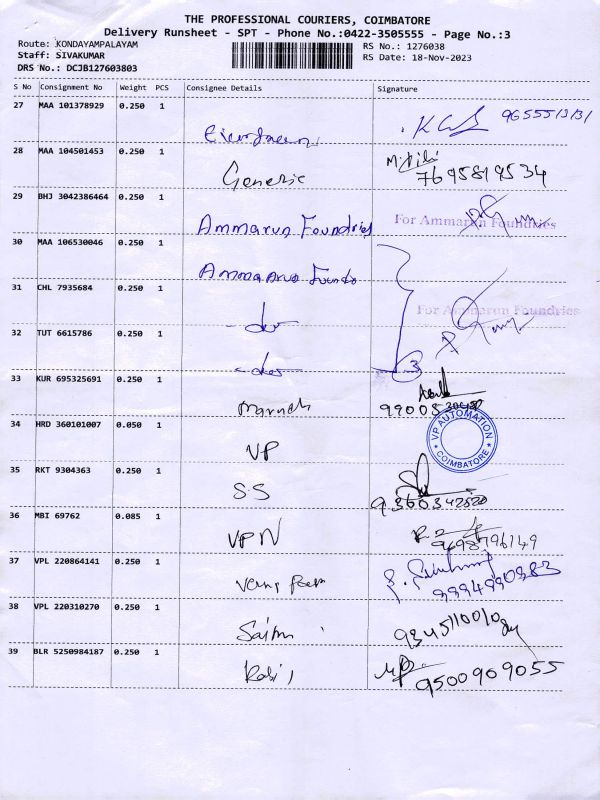 THE PROFESSIONAL COURIERS, COIMBATORE
Delivery Runsheet - SPT - Phone No.:0422-3505555 - Page No.:3
Route: KONDAYAMPALAYAM
RS No.: 1276038
Staff: SIVAKUMAR
RS Date: 18-Nov-2023
DRS No.: DCJB127603803
S No Consignment No Weight PCS Consignee Details Signature
27 MAA 101378929 0.250 1
28 MAA 104501453 0.250 1
Generic 7695819534
29 BHJ 3042386464 0.250 1
Ammarun Foundries For Ammarun Foundries
30 MAA 106530046 0.250 1
31 CHL 7935684 0.250 1
For Ammarun Foundries
32 TUT 6615786 0.250 1
3
33 KUR 695325691 0.250 1
34 HRD 360101007 0.050 1
VP VP AUTOMATION COIMBATORE
35 RKT 9304363 0.250 1
SS 9360342520
36 MBI 69762 0.085 1
VPN
37 VPL 220864141 0.250 1
9994990383
38 VPL 220310270 0.250 1
39 BLR 5250984187 0.250 1
9500909055